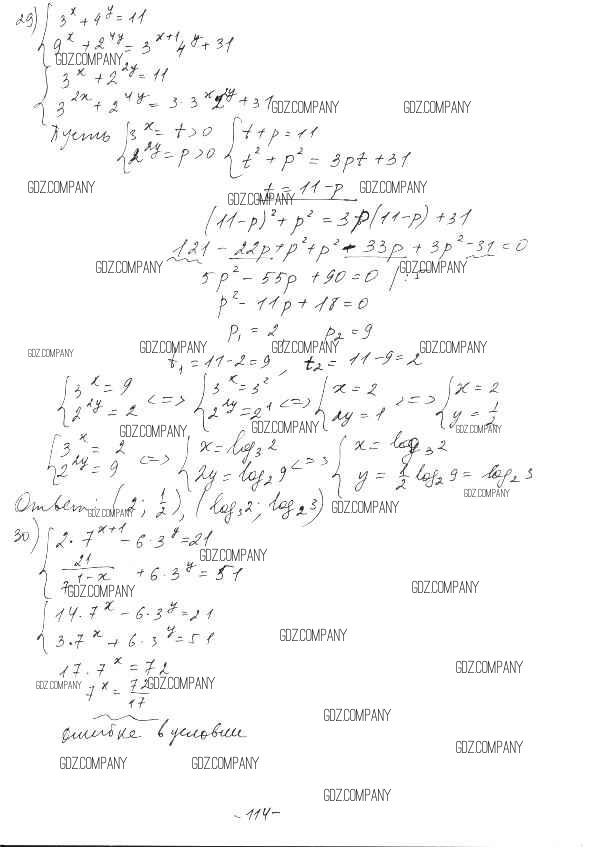 29) { 3^x + 4^y = 11
9^x + 2^{4y} = 3^{x+1} 4^y + 31
GDZ.COMPANY
{ 3^x + 2^{2y} = 11
3^{2x} + 2^{4y} = 3·3^x 2^{2y} + 31 GDZ.COMPANY GDZ.COMPANY
Пусть { 3^x = t > 0 { t + p = 11
2^{2y} = p > 0 t^2 + p^2 = 3pt + 31
GDZ.COMPANY t = 11 - p GDZ.COMPANY
GDZ.COMPANY
(11-p)^2 + p^2 = 3p(11-p) + 31
121 - 22p + p^2 + p^2 - 33p + 3p^2 - 31 = 0
GDZ.COMPANY 5p^2 - 55p + 90 = 0 GDZ.COMPANY
p^2 - 11p + 18 = 0
p_1 = 2 p_2 = 9
GDZ.COMPANY GDZ.COMPANY GDZ.COMPANY GDZ.COMPANY
t_1 = 11-2 = 9, t_2 = 11-9 = 2
{ 3^x = 9 <=> { 3^x = 3^2 <=> { x = 2 <=> { x = 2
2^{2y} = 2 2^{2y} = 2^1 2y = 1 y = 1/2
GDZ.COMPANY GDZ.COMPANY GDZ.COMPANY
{ 3^x = 2 <=> { x = log_3 2 <=> { x = log_3 2
2^{2y} = 9 2y = log_2 9 y = 1/2 log_2 9 = log_2 3
GDZ.COMPANY
Ответ: (2; 1/2), (log_3 2; log_2 3) GDZ.COMPANY
GDZ.COMPANY
30) { 2·7^{x+1} - 6·3^y = 21
GDZ.COMPANY
21/7^{1-x} + 6·3^y = 51
GDZ.COMPANY GDZ.COMPANY
{ 14·7^x - 6·3^y = 21
3·7^x + 6·3^y = 51 GDZ.COMPANY
17·7^x = 72 GDZ.COMPANY
GDZ.COMPANY 7^x = 72/17 GDZ.COMPANY
GDZ.COMPANY
ошибка в условии
GDZ.COMPANY
GDZ.COMPANY GDZ.COMPANY
GDZ.COMPANY
- 114 -